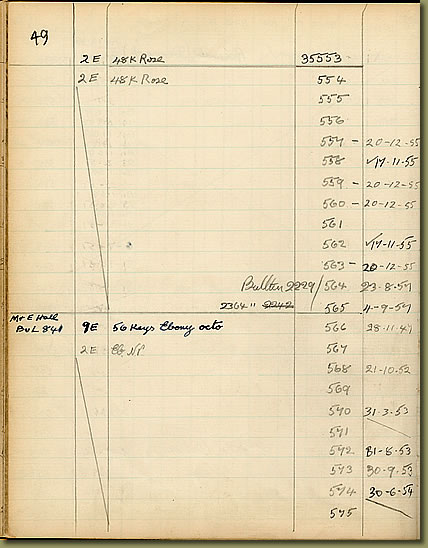 49
2E 48K Rose 35553
2E 48K Rose 554
555
556
557 - 20-12-55
558 ✓17-11-55
559 - 20-12-55
560 - 20-12-55
561
562 ✓17-11-55
563 - 20-12-55
Bulletin 2229 / 564 23-8-57
2364 " 2242 565 4-9-57
Mr E Hall
BUL 841 9E 56 Keys Ebony octo 566 28-11-47
2E Eb NP. 567
568 21-10-52
569
570 31.3.53
571
572 31-8-53
573 30-9-53
574 30-6-54
575